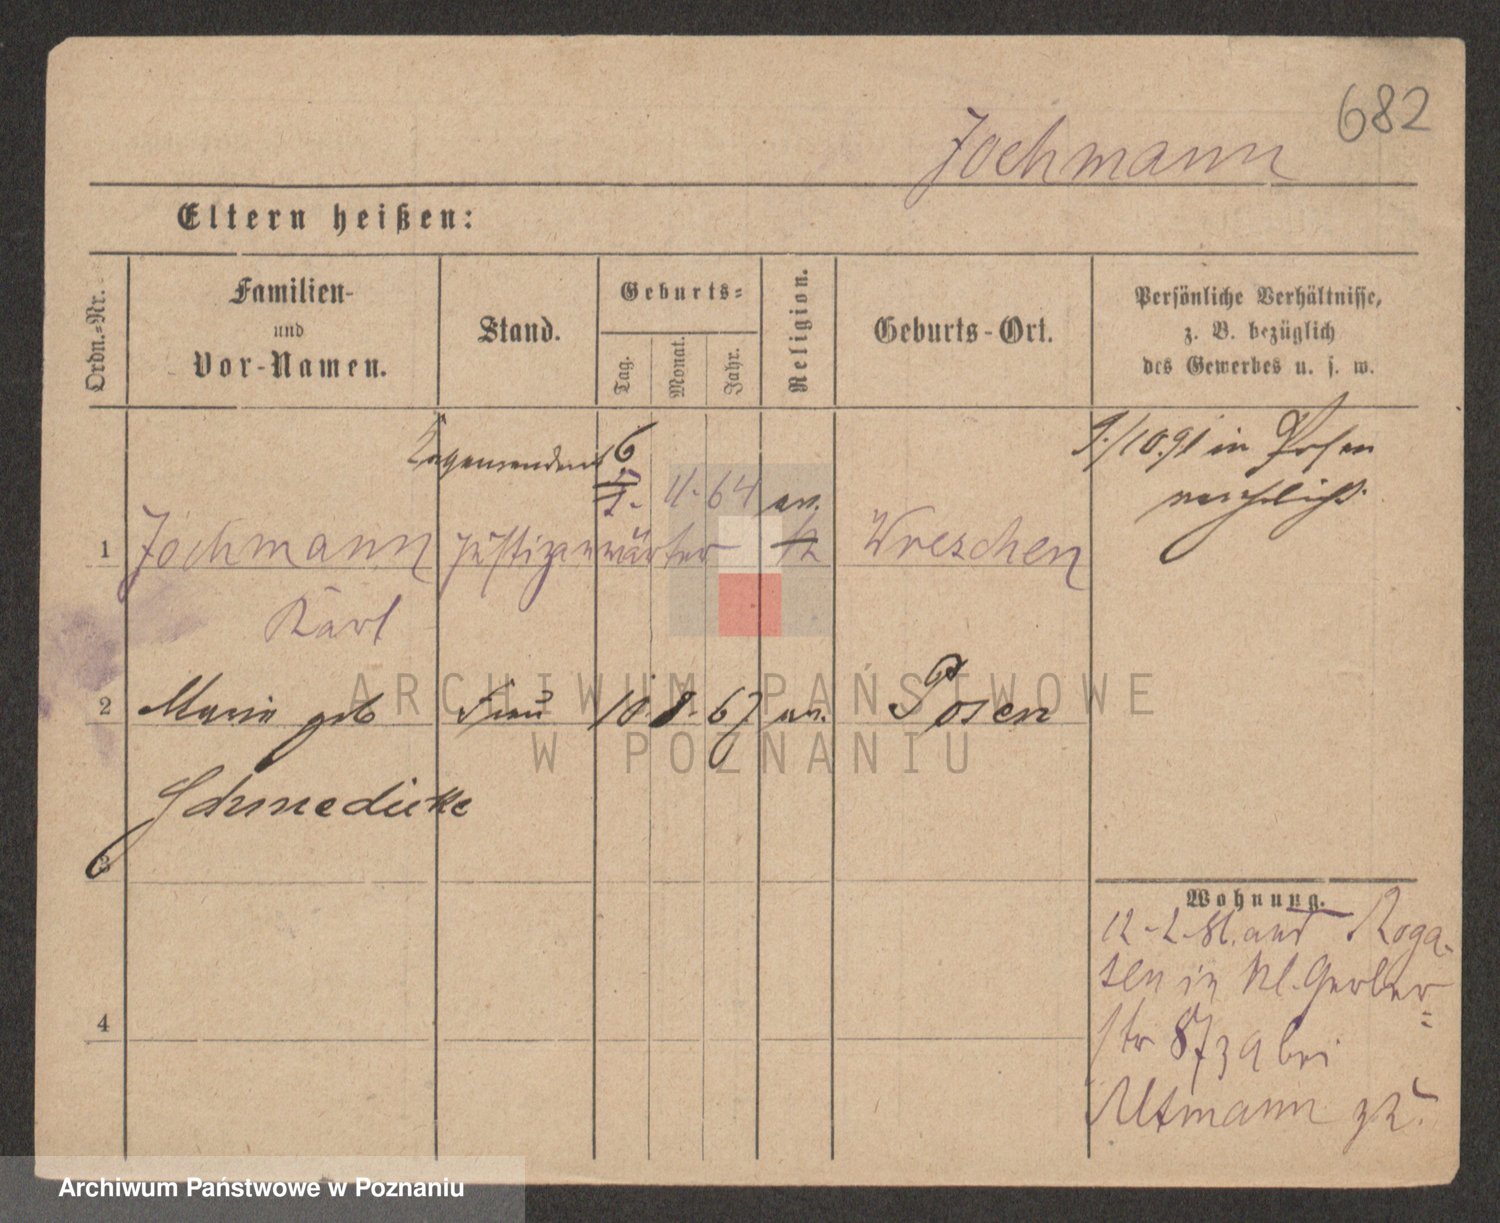 682
Jochmann
Eltern heißen:
Ordn.-Nr.
Familien-
und
Vor-Namen.
Stand.
Geburts-
Tag.
Monat.
Jahr.
Religion.
Geburts-Ort.
Persönliche Verhältnisse,
z. B. bezüglich
des Gewerbes u. s. w.
6
9./10.91 in Posen
11. 64 ev.
1 Jochmann Justizanwärter Wreschen
Karl
2 Marie geb Frau 10. 8. 67 ev. Posen
Schmedicke
3
4
Wohnung.
Roga-
sen in Kl. Gerber-
str 8 bei
Altmann
ARCHIWUM PAŃSTWOWE
W POZNANIU
Archiwum Państwowe w Poznaniu